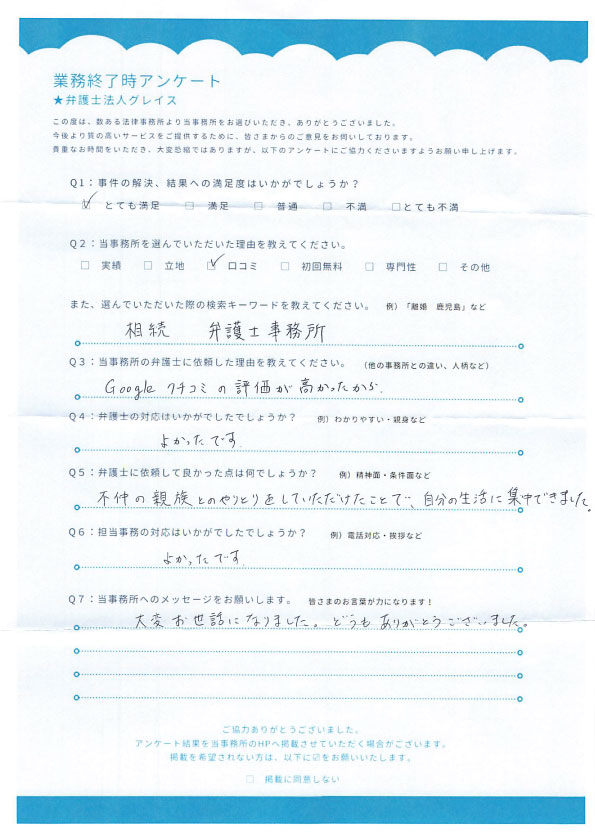 業務終了時アンケート
★弁護士法人グレイス
この度は、数ある法律事務所より当事務所をお選びいただき、ありがとうございました。
今後より質の高いサービスをご提供するために、皆さまからのご意見をお伺いしております。
貴重なお時間をいただき、大変恐縮ではありますが、以下のアンケートにご協力くださいますようお願い申し上げます。
Q1：事件の解決、結果への満足度はいかがでしょうか？
☑ とても満足 □ 満足 □ 普通 □ 不満 □とても不満
Q2：当事務所を選んでいただいた理由を教えてください。
□ 実績 □ 立地 ☑ 口コミ □ 初回無料 □ 専門性 □ その他
また、選んでいただいた際の検索キーワードを教えてください。 例）「離婚 鹿児島」など
相続 弁護士事務所
Q3：当事務所の弁護士に依頼した理由を教えてください。 （他の事務所との違い、人柄など）
Google クチコミの評価が高かったから.
Q4：弁護士の対応はいかがでしたでしょうか？ 例）わかりやすい・親身など
よかったです.
Q5：弁護士に依頼して良かった点は何でしょうか？ 例）精神面・条件面など
不仲の親族とのやりとりをしていただけたことで、自分の生活に集中できました。
Q6：担当事務の対応はいかがでしたでしょうか？ 例）電話対応・挨拶など
よかったです.
Q7：当事務所へのメッセージをお願いします。 皆さまのお言葉が力になります！
大変お世話になりました。どうもありがとうございました。
ご協力ありがとうございました。
アンケート結果を当事務所のHPへ掲載させていただく場合がございます。
掲載を希望されない方は、以下に☑をお願いいたします。
□ 掲載に同意しない